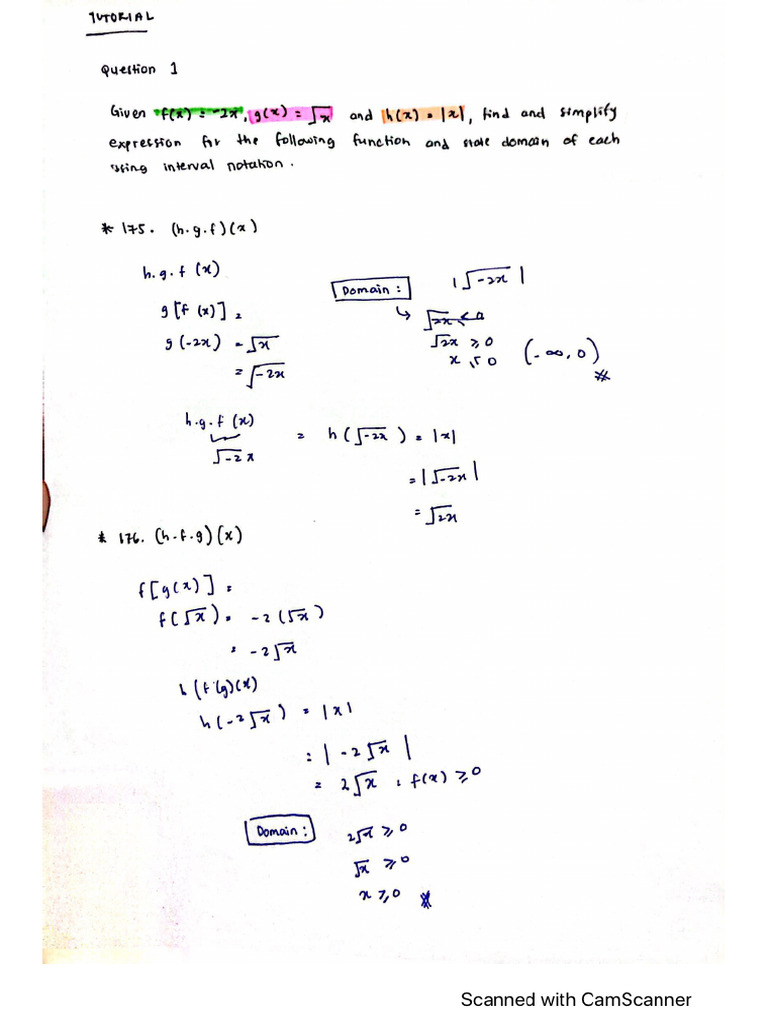 TUTORIAL
Question 1
Given f(x) = -2x, g(x) = √x and h(x) = |x|, find and simplify
expression for the following function and state domain of each
using interval notation.
* 175. (h.g.f)(x)
h.g.f (x)
g[f(x)] =
g(-2x) = √x
= √-2x
Domain:
|√-2x|
√2x < 0
√2x ≥ 0
x ≤ 0 (-∞, 0)
h.g.f (x)
√-2x
= h(√-2x) = |x|
= |√-2x|
= √2x
* 176. (h.f.g)(x)
f[g(x)] =
f(√x) = -2(√x)
= -2√x
h(f.g)(x)
h(-2√x) = |x|
= |-2√x|
= 2√x , f(x) ≥ 0
Domain:
2√x ≥ 0
√x ≥ 0
x ≥ 0
Scanned with CamScanner